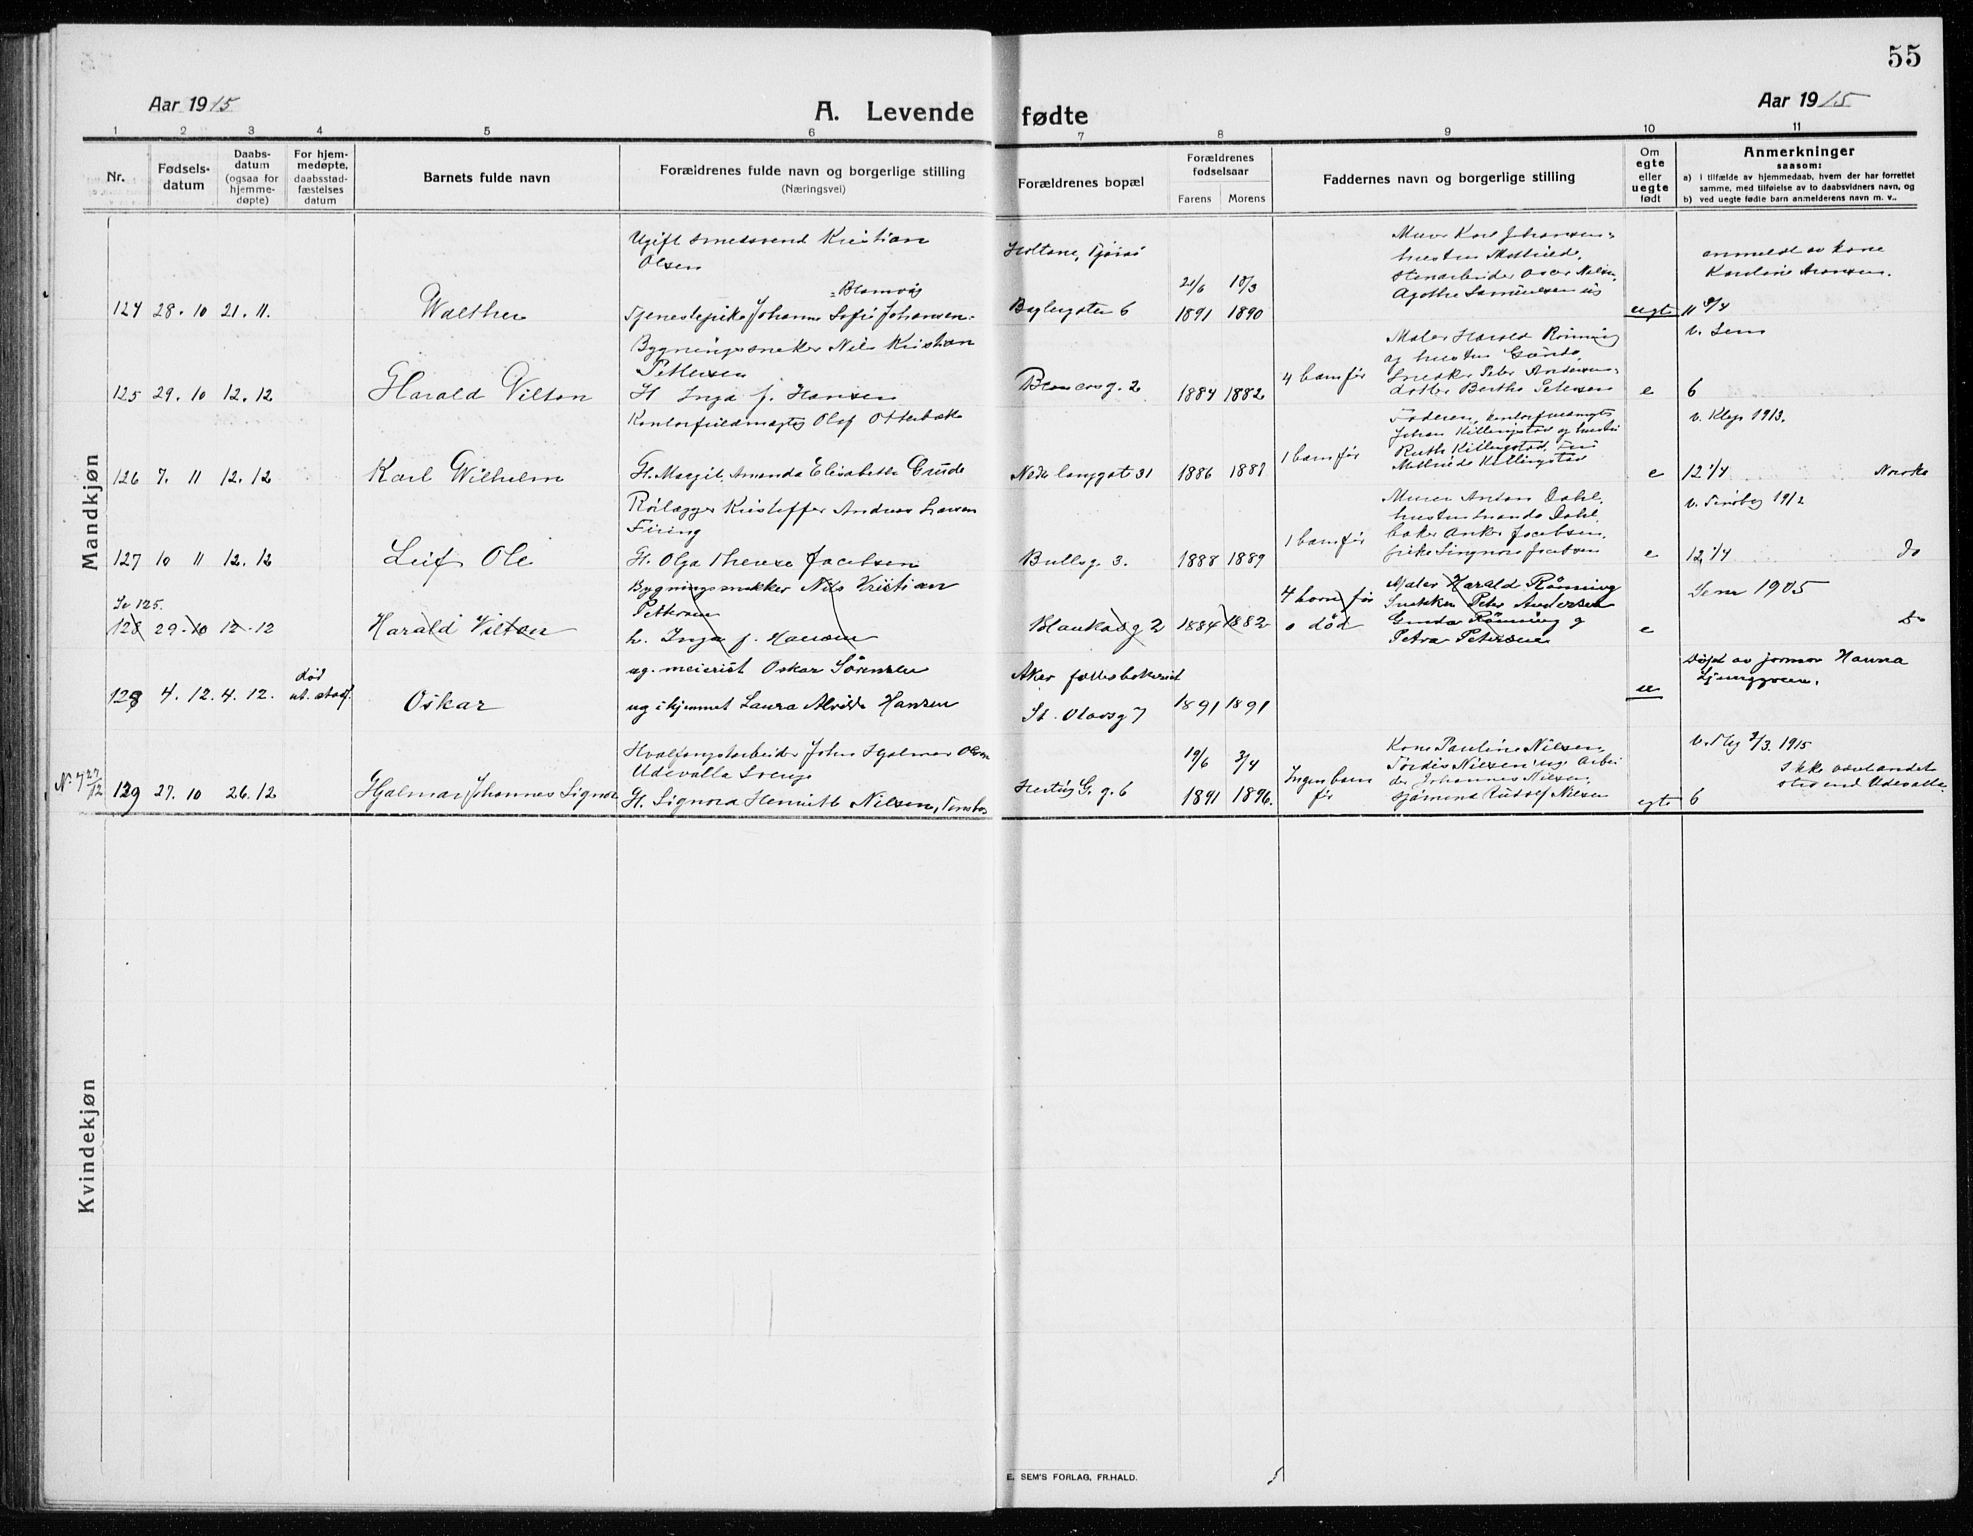 55
Aar 1915
A. Levende fødte
Aar 1915
1 2 3 4 5 6 7 8 9 10 11
Nr.
Fødsels-
datum
Daabs-
datum
(ogsaa for
hjemme-
døpte)
For hjem-
medøpte,
daabsstad-
fæstelses
datum
Barnets fulde navn
Forældrenes fulde navn og borgerlige stilling
(Næringsvei)
Forældrenes bopæl
Forældrenes
fødselsaar
Farens Morens
Faddernes navn og borgerlige stilling
Om
egte
eller
uegte
født
Anmerkninger
saasom:
a) I tilfælde av hjemmedaab, hvem der har forrettet
samme, med tilføielse av to daabsvidners navn, og
b) ved uegte fødte barn anmelderens navn m. v..
Mandkjøn
Ugift smedsvend Kristian
Olsen
Holtane,
21/6 18/3
Murer Karl Johansen
hustru Mathilde,
anmeldt av kone
124 28. 10 21. 11.
Walther
Tjenestepike Johanne Sofie Johansen
Baglergaten 6
1891 1890
uegte
11 9/4
Bygningssnekker Nils Kristian
Pettersen
Maler Harald Rønning
og hustru
v. Sem
125 29. 10 12. 12
Harald Vilton
H. Inga f. Hansen
1884 1882
4 barn før
Snedker Peter Andersen
datter Berthe Petersen
e
6
Kontorfuldmægtig Olaf Otterbæk
Faderen, kontorfuldmægtig
Johan Killingstad og hustru
Ruth Killingstad,
Mathilde Killingstad
v. Klep 1913.
126 7. 11 12. 12
Karl Wilhelm
H. Margit Amanda Elisabeth Grude
Nedre langgate 31
1886 1887
1 barn før
e
12 1/4
Norske
Rørlægger Kristoffer Andreas Larsen
Firing
Murer Anton Dahl,
hustru Dahl,
baker Anker Jacobsen,
pike Jacobsen
v. Tønsberg 1912
127 10 11 12. 12
Leif Ole
H. Olga Therese Jacobsen
Bullsg 3.
1888 1889
1 barn før
e
12 1/4
Do
Se 125.
Bygningssnekker Nils Kristian
Pettersen
Maler Harald Rønning
Snekker Peter Andersen
Sem 1905
128 29-10 12-12
Harald Vilton
h. Inga f. Hansen
Blankasg 2
1884 1882
4 barn før
0 død
Gunda Rønning og
Petra Petersen
e
Do
død
ut. stadf.
ug. meierist Oskar Sørensen
Aker fællesbakeri
Døpt av jormor Hanna
Ljunggreen.
128 4. 12. 4. 12.
Oskar
ug. i hjemmet Laura Alvilde Hansen
St. Olavsg 7
1891 1891
ue
Hvalfangstarbeider John Hjalmar Olsen
Udevalla Sverige
19/6 3/4
Kone Pauline Nilsen,
Tordis Nilsen ug. Arbei
der Johannes Nilsen,
sjømand Rudolf Nilsen
3/3. 1915
Ikke
Udevalla
No 7 27/12
129 27. 10 26. 12
Hjalmar Johannes Signor
H. Signora Henriette Nilsen, Tønsberg
1891 1896.
Ingen barn
før
egte
6
Kvindekjøn
E. SEM'S FORLAG, FR.HALD.
5